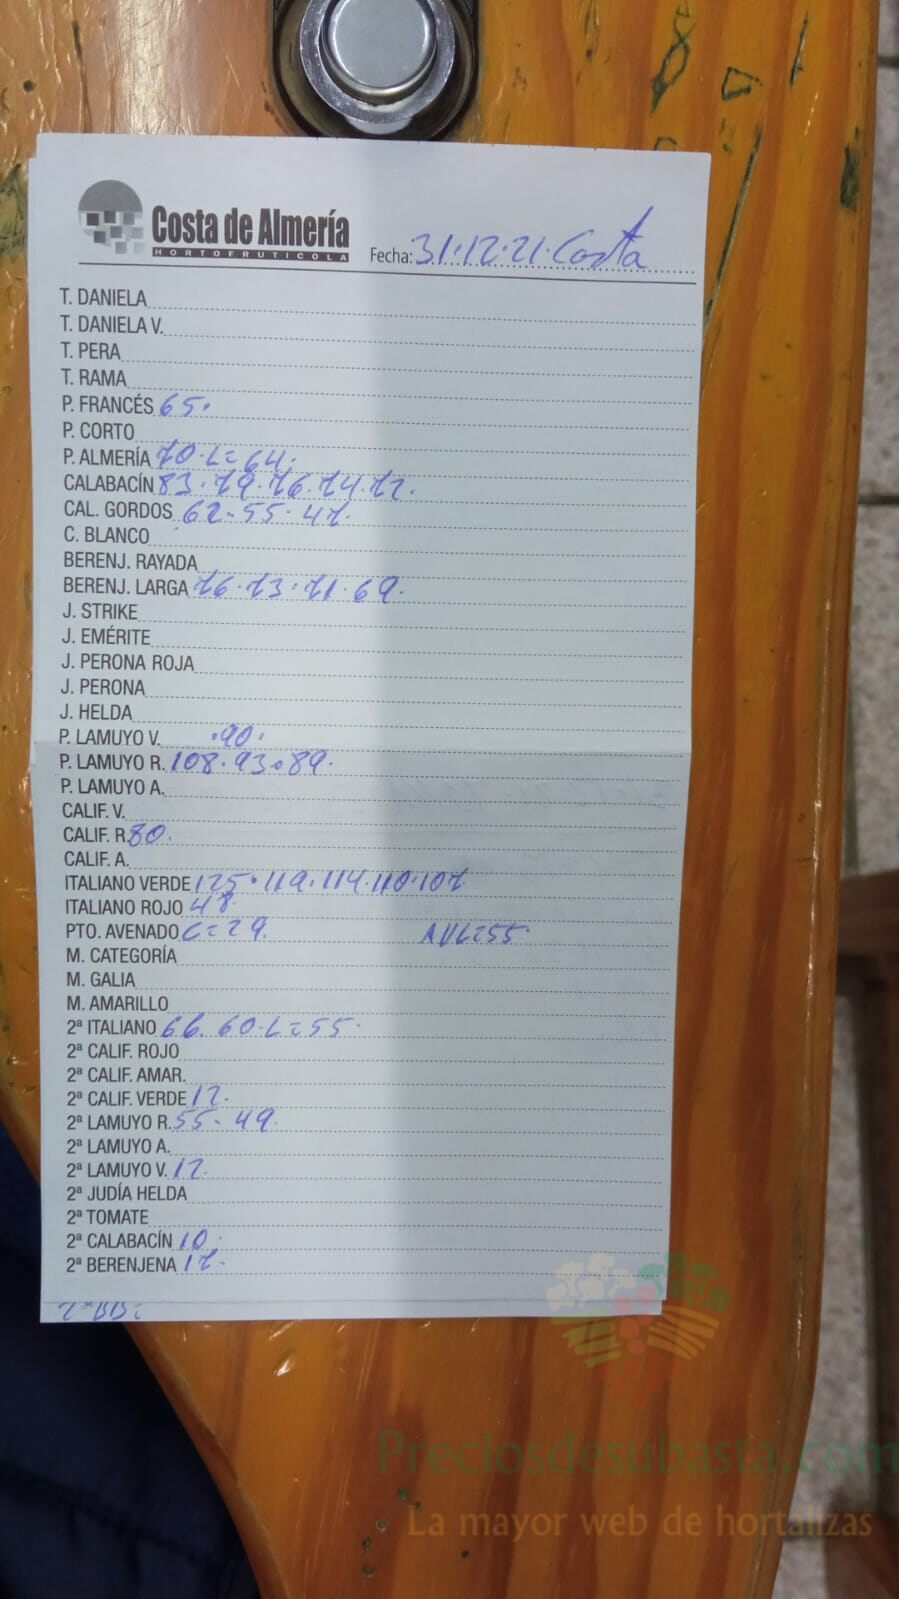 Costa de Almería
HORTOFRUTICOLA
Fecha: 31·12·21· Costa
T. DANIELA
T. DANIELA V.
T. PERA
T. RAMA
P. FRANCÉS 65.
P. CORTO
P. ALMERÍA 70·L=64.
CALABACÍN 83·79·76·74·72.
CAL. GORDOS 62·55·47
C. BLANCO
BERENJ. RAYADA
BERENJ. LARGA 76·73·71·69.
J. STRIKE
J. EMÉRITE
J. PERONA ROJA
J. PERONA
J. HELDA
P. LAMUYO V. ·90·
P. LAMUYO R. 108·93·89.
P. LAMUYO A.
CALIF. V.
CALIF. R. 80.
CALIF. A.
ITALIANO VERDE 125·119·114·110·107
ITALIANO ROJO 48
PTO. AVENADO C=29.
M. CATEGORÍA
M. GALIA
M. AMARILLO
2ª ITALIANO 66. 60·L=55·
2ª CALIF. ROJO
2ª CALIF. AMAR.
2ª CALIF. VERDE 12.
2ª LAMUYO R. 55·49.
2ª LAMUYO A.
2ª LAMUYO V. 12.
2ª JUDÍA HELDA
2ª TOMATE
2ª CALABACÍN 10.
2ª BERENJENA 17.
Preciosdesubasta.com
La mayor web de hortalizas